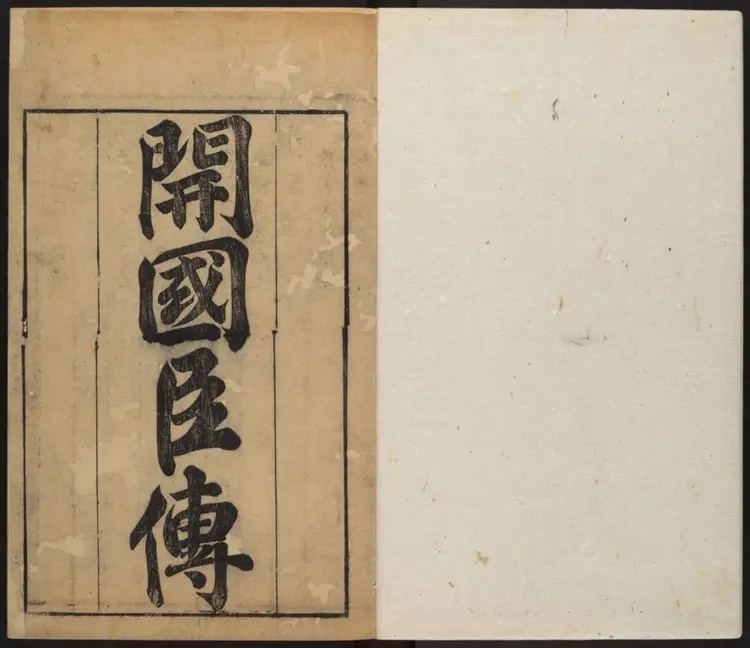 開國臣傳